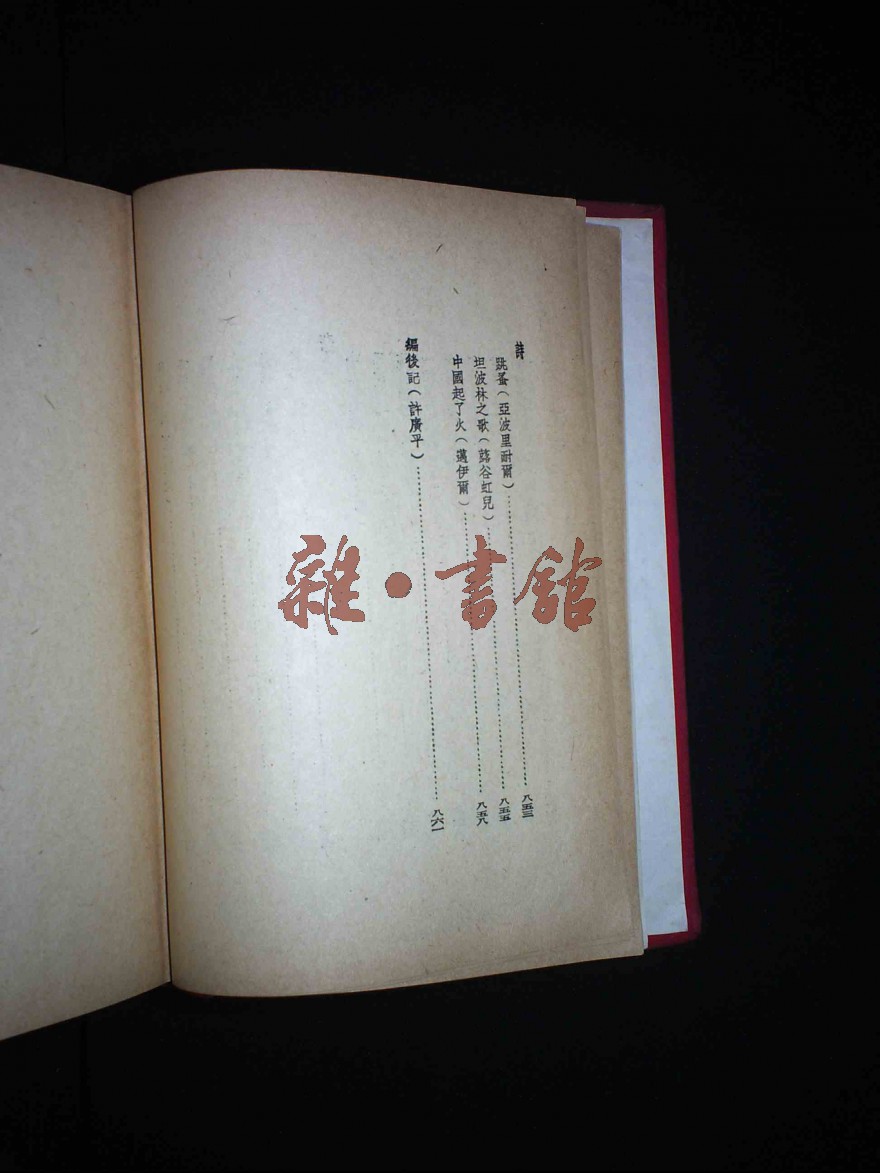 詩
跳蚤（亞波里耐爾）……八五三
坦波林之歌（蕗谷虹兒）……八五五
中國起了火（邁伊爾）……八五八
編後記（許廣平）……八六一
雜·書館